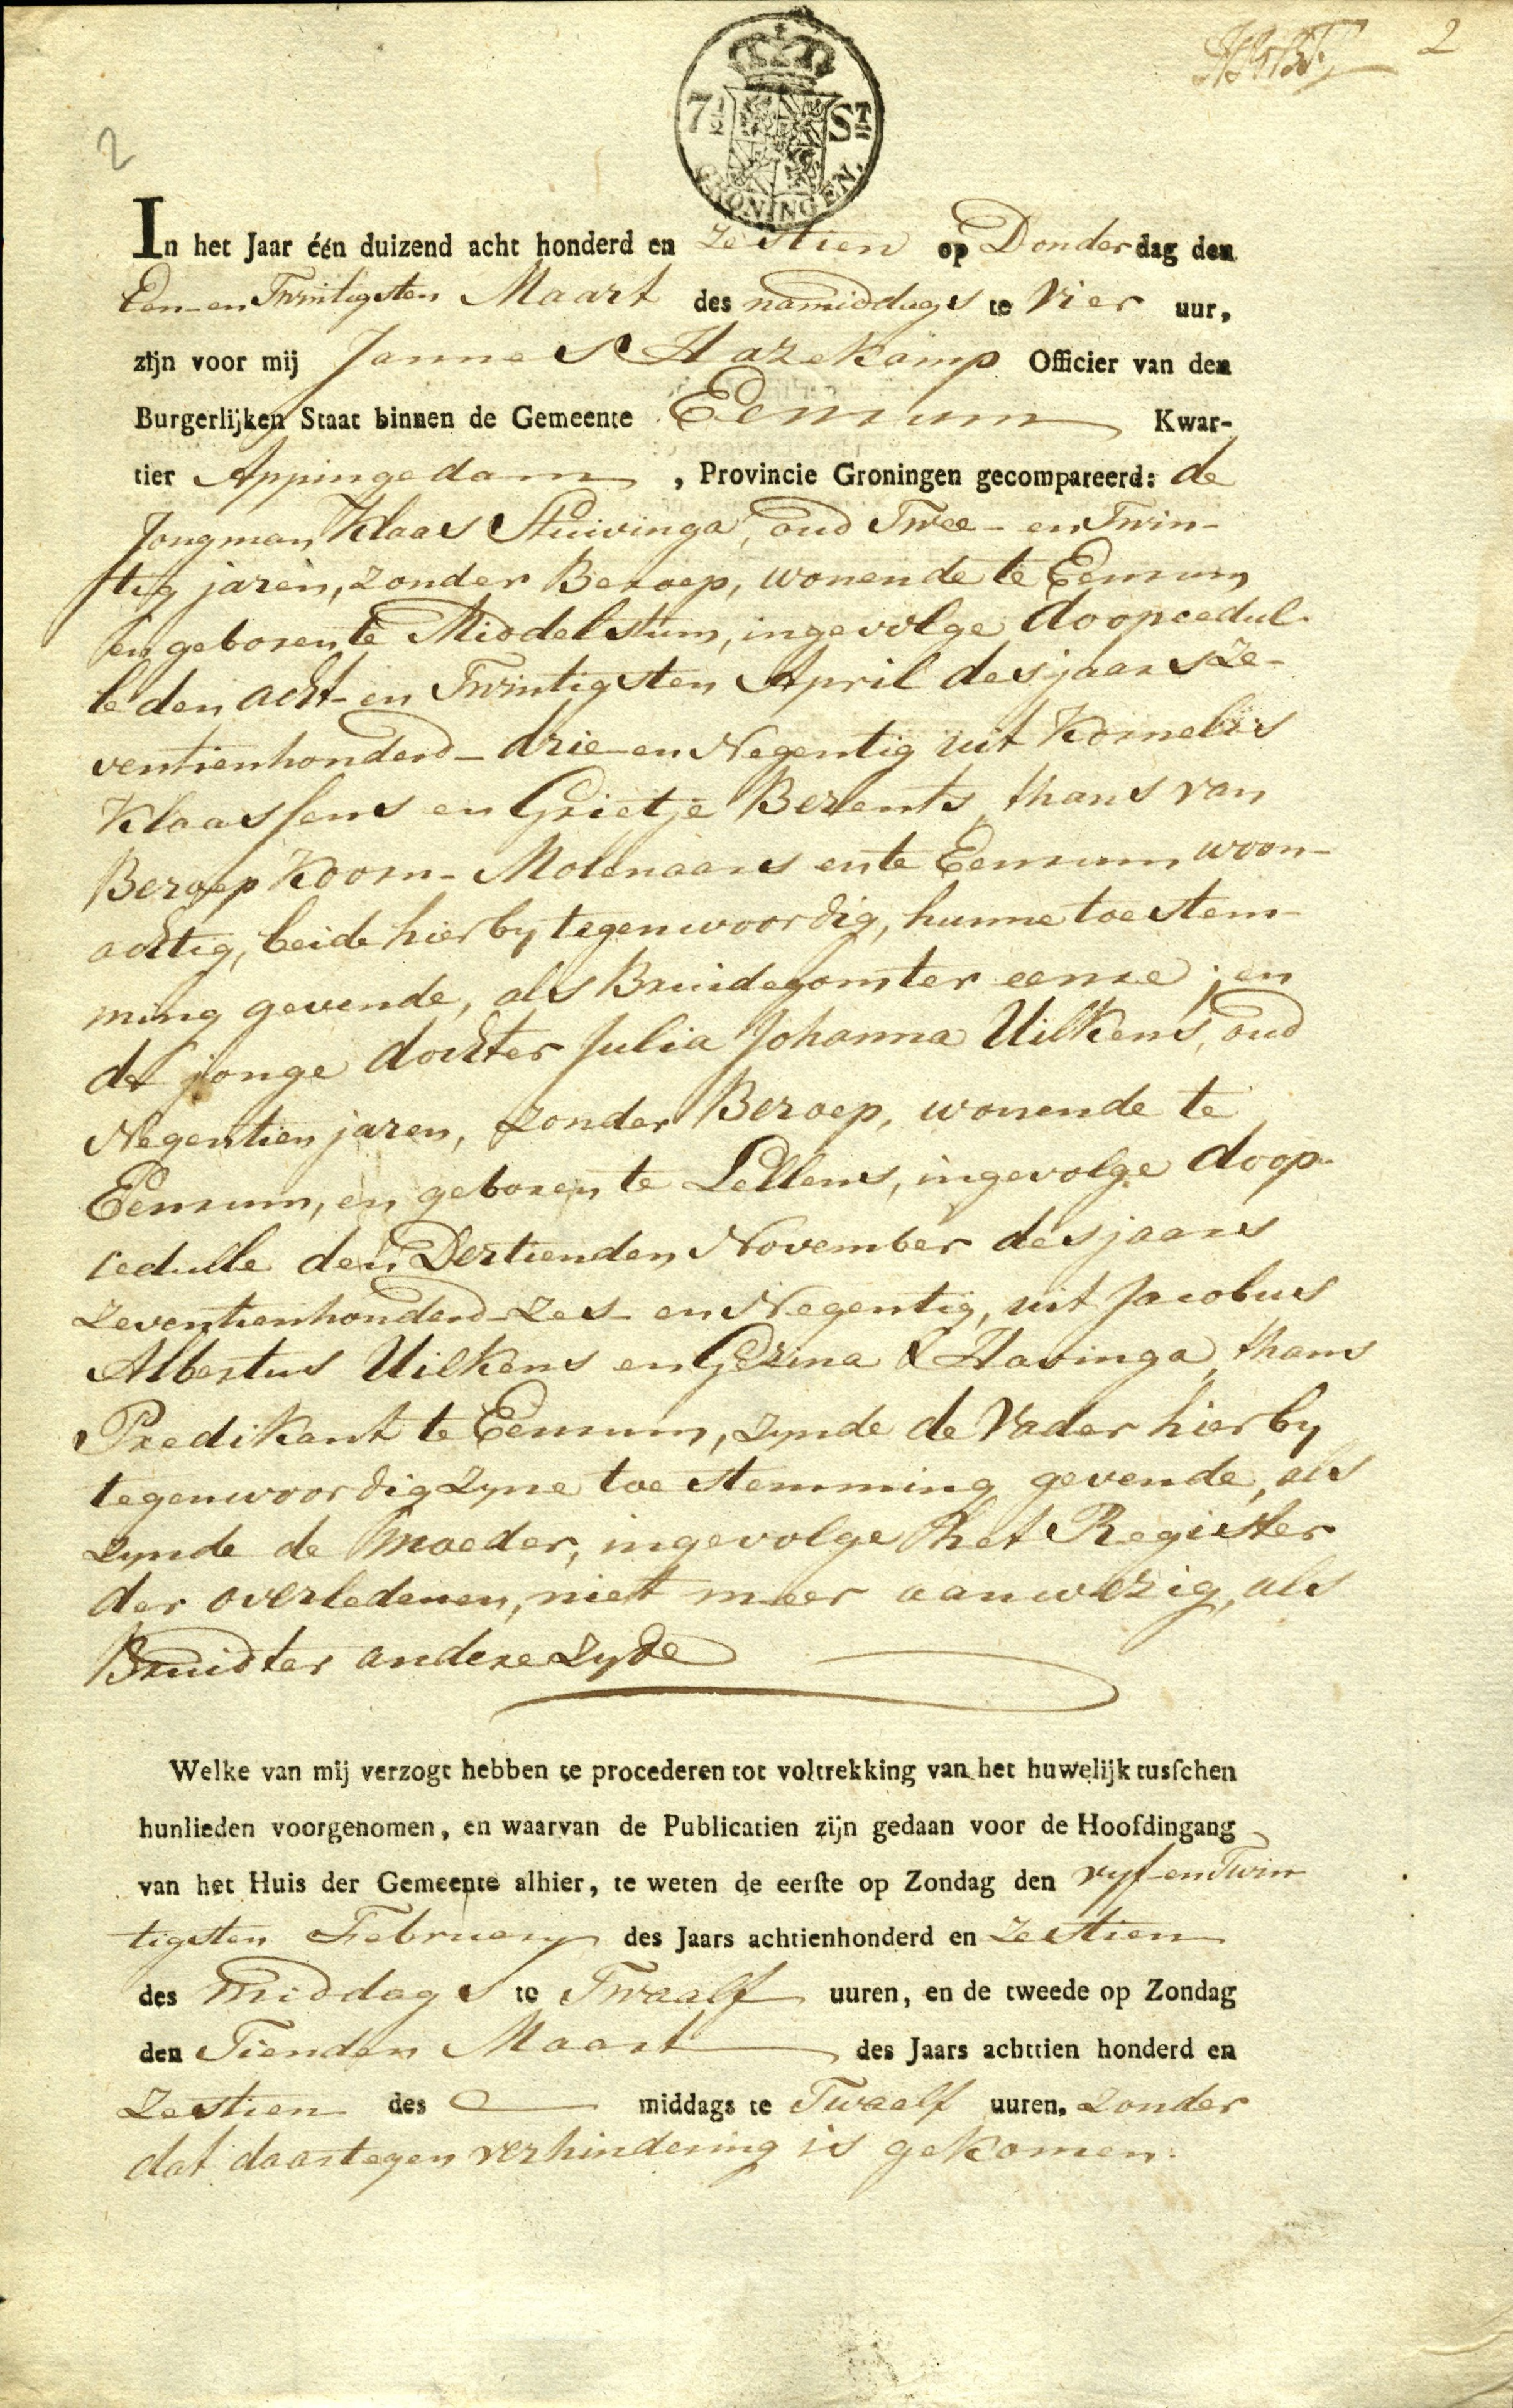 2
2
7½ St
GRONINGEN.
In het Jaar één duizend acht honderd en Zestien op Donderdag den
Een-en Twintigsten Maart des namiddags te Vier uur,
zijn voor mij Jannes Hazekamp Officier van den
Burgerlijken Staat binnen de Gemeente Eenrum Kwar-
tier Appingedam, Provincie Groningen gecompareerd: de
Jongman Klaas Stuivinga, oud Twee- en Twin-
tig jaren, zonder Beroep, wonende te Eenrum
en geboren te Middelstum, ingevolge doopcedul-
le den acht- en Twintigsten April des jaars Ze-
ventienhonderd- drie-en Negentig uit Kornelis
Klaassens en Grietje Berents, thans van
Beroep Koorn- Molenaars en te Eenrum woon-
achtig, beide hier by tegenwoordig, hunne toestem-
ming gevende, als Bruidegom ter eenre; en
de jonge dochter Julia Johanna Uilkens, oud
Negentien jaren, zonder Beroep, wonende te
Eenrum, en geboren te Lellens, ingevolge doop-
cedulle den Dertienden November des jaars
Zeventienhonderd- Zes- en Negentig, uit Jacobus
Albertus Uilkens en Gezina Havinga, thans
Predikant te Eenrum, zynde de Vader hier by
tegenwoordig zyne toestemming gevende, als
zynde de moeder, ingevolge het Register
der overledenen, niet meer aanwezig, als
Bruid ter andere zyde
Welke van mij verzogt hebben te procederen tot voltrekking van het huwelijk tusschen
hunlieden voorgenomen, en waarvan de Publicatien zijn gedaan voor de Hoofdingang
van het Huis der Gemeente alhier, te weten de eerste op Zondag den vyf-en Twin
tigsten February des Jaars achtienhonderd en Zestien
des middags te Twaalf uuren, en de tweede op Zondag
den Tienden Maart des Jaars achttien honderd en
Zestien des middags te Twaalf uuren. zonder
dat daartegen verhindering is gekomen.